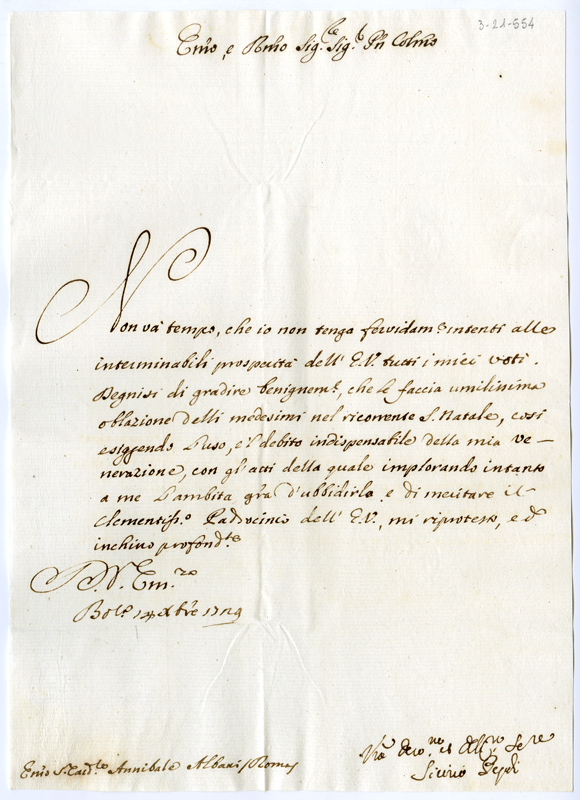 3-21-554
Emo, e Rmo Sig.re Sig.r Pñ Colmo
Non và tempo, che io non tenga fervidam.e intenti alle
interminabili prosperità dell' E.V. tutti i miei voti.
Degnisi di gradire benignem.e, che le faccia umilissima
oblazione delli medesimi nel ricorrente S. Natale, cosi
esiggendo l'uso, e'l debito indispensabile della mia ve-
nerazione, con gl'atti della quale implorando intanto
a me l'ambita gr̃a d'ubbidirla e di meritare il
Clementiss.o Padrocinio dell' E.V., mi riprotesto, ed
inchino profond.te
D. V. Em.za
Bol.a 14 Xbre 1729
Emo S. Card.le Annibale Albani Roma